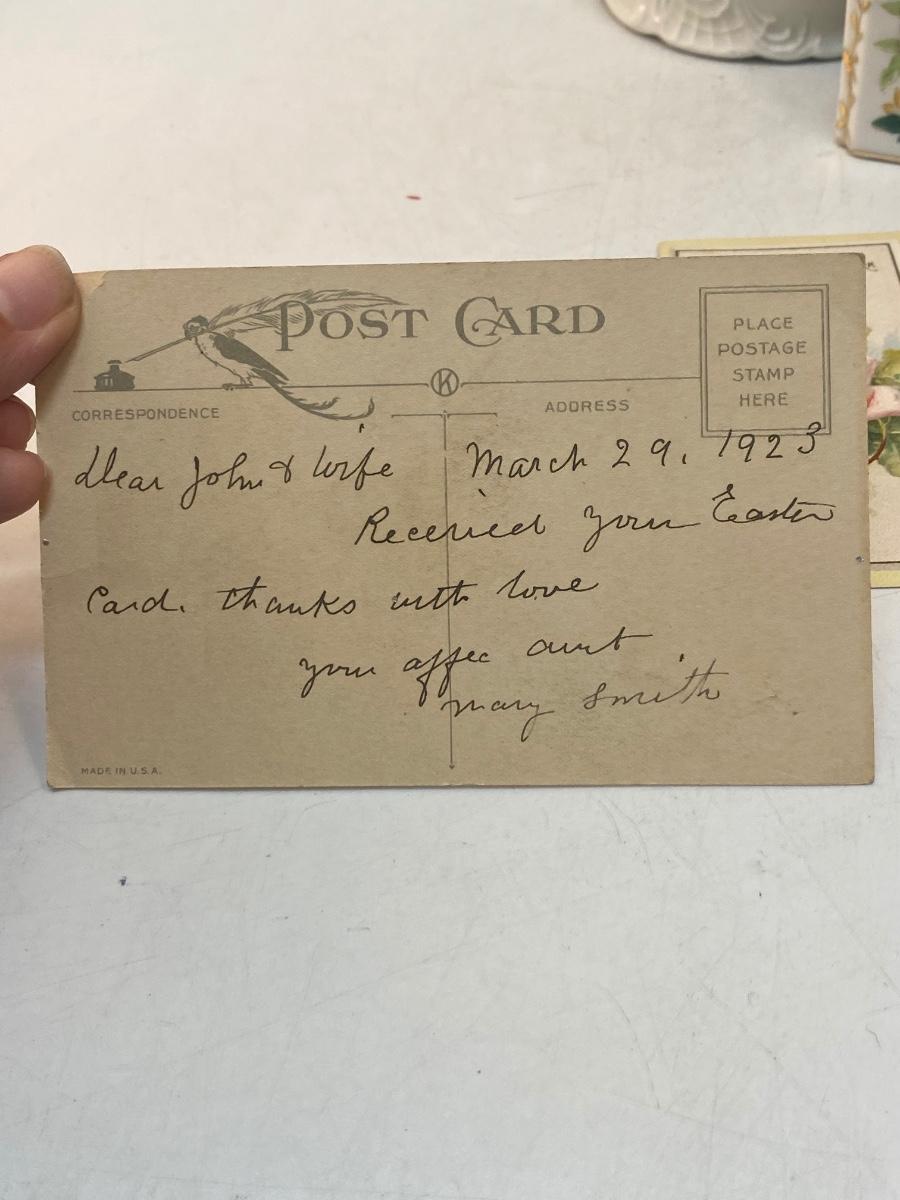 POST CARD
PLACE
POSTAGE
STAMP
HERE
K
CORRESPONDENCE
ADDRESS
Dear John & Wife
March 29, 1923
Received your Easter
Card. thanks with love
your affec aunt
Mary Smith
MADE IN U.S.A.